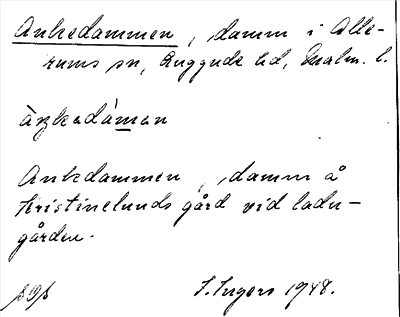 Ankedammen, damm i Alle-
rums sn, Luggude hd, Malm. l.
àŋkədámən
Ankedammen, damm å
Kristinelunds gård vid ladu-
gården.
S. Ingers 1948.